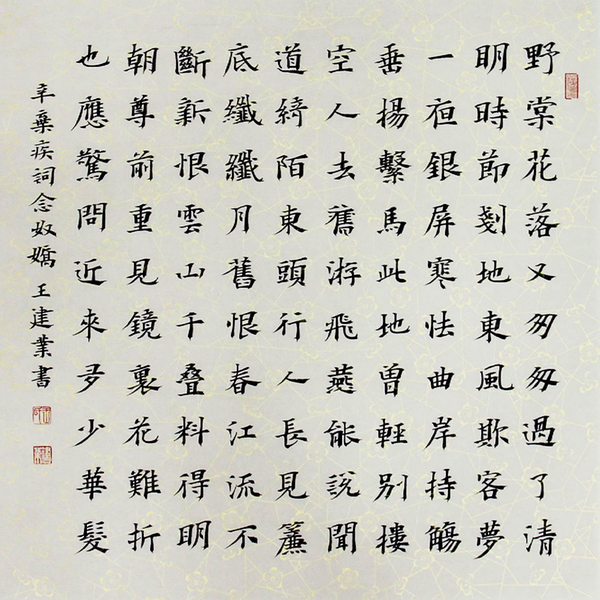 野棠花落又匆匆過了清
明時節剗地東風欺客夢
一夜銀屏寒怯曲岸持觴
垂楊繫馬此地曾輕別樓
空人去舊游飛燕能說聞
道綺陌東頭行人長見簾
底纖纖月舊恨春江流不
斷新恨雲山千疊料得明
朝尊前重見鏡裏花難折
也應驚問近來多少華髮
辛棄疾詞念奴嬌王建業書